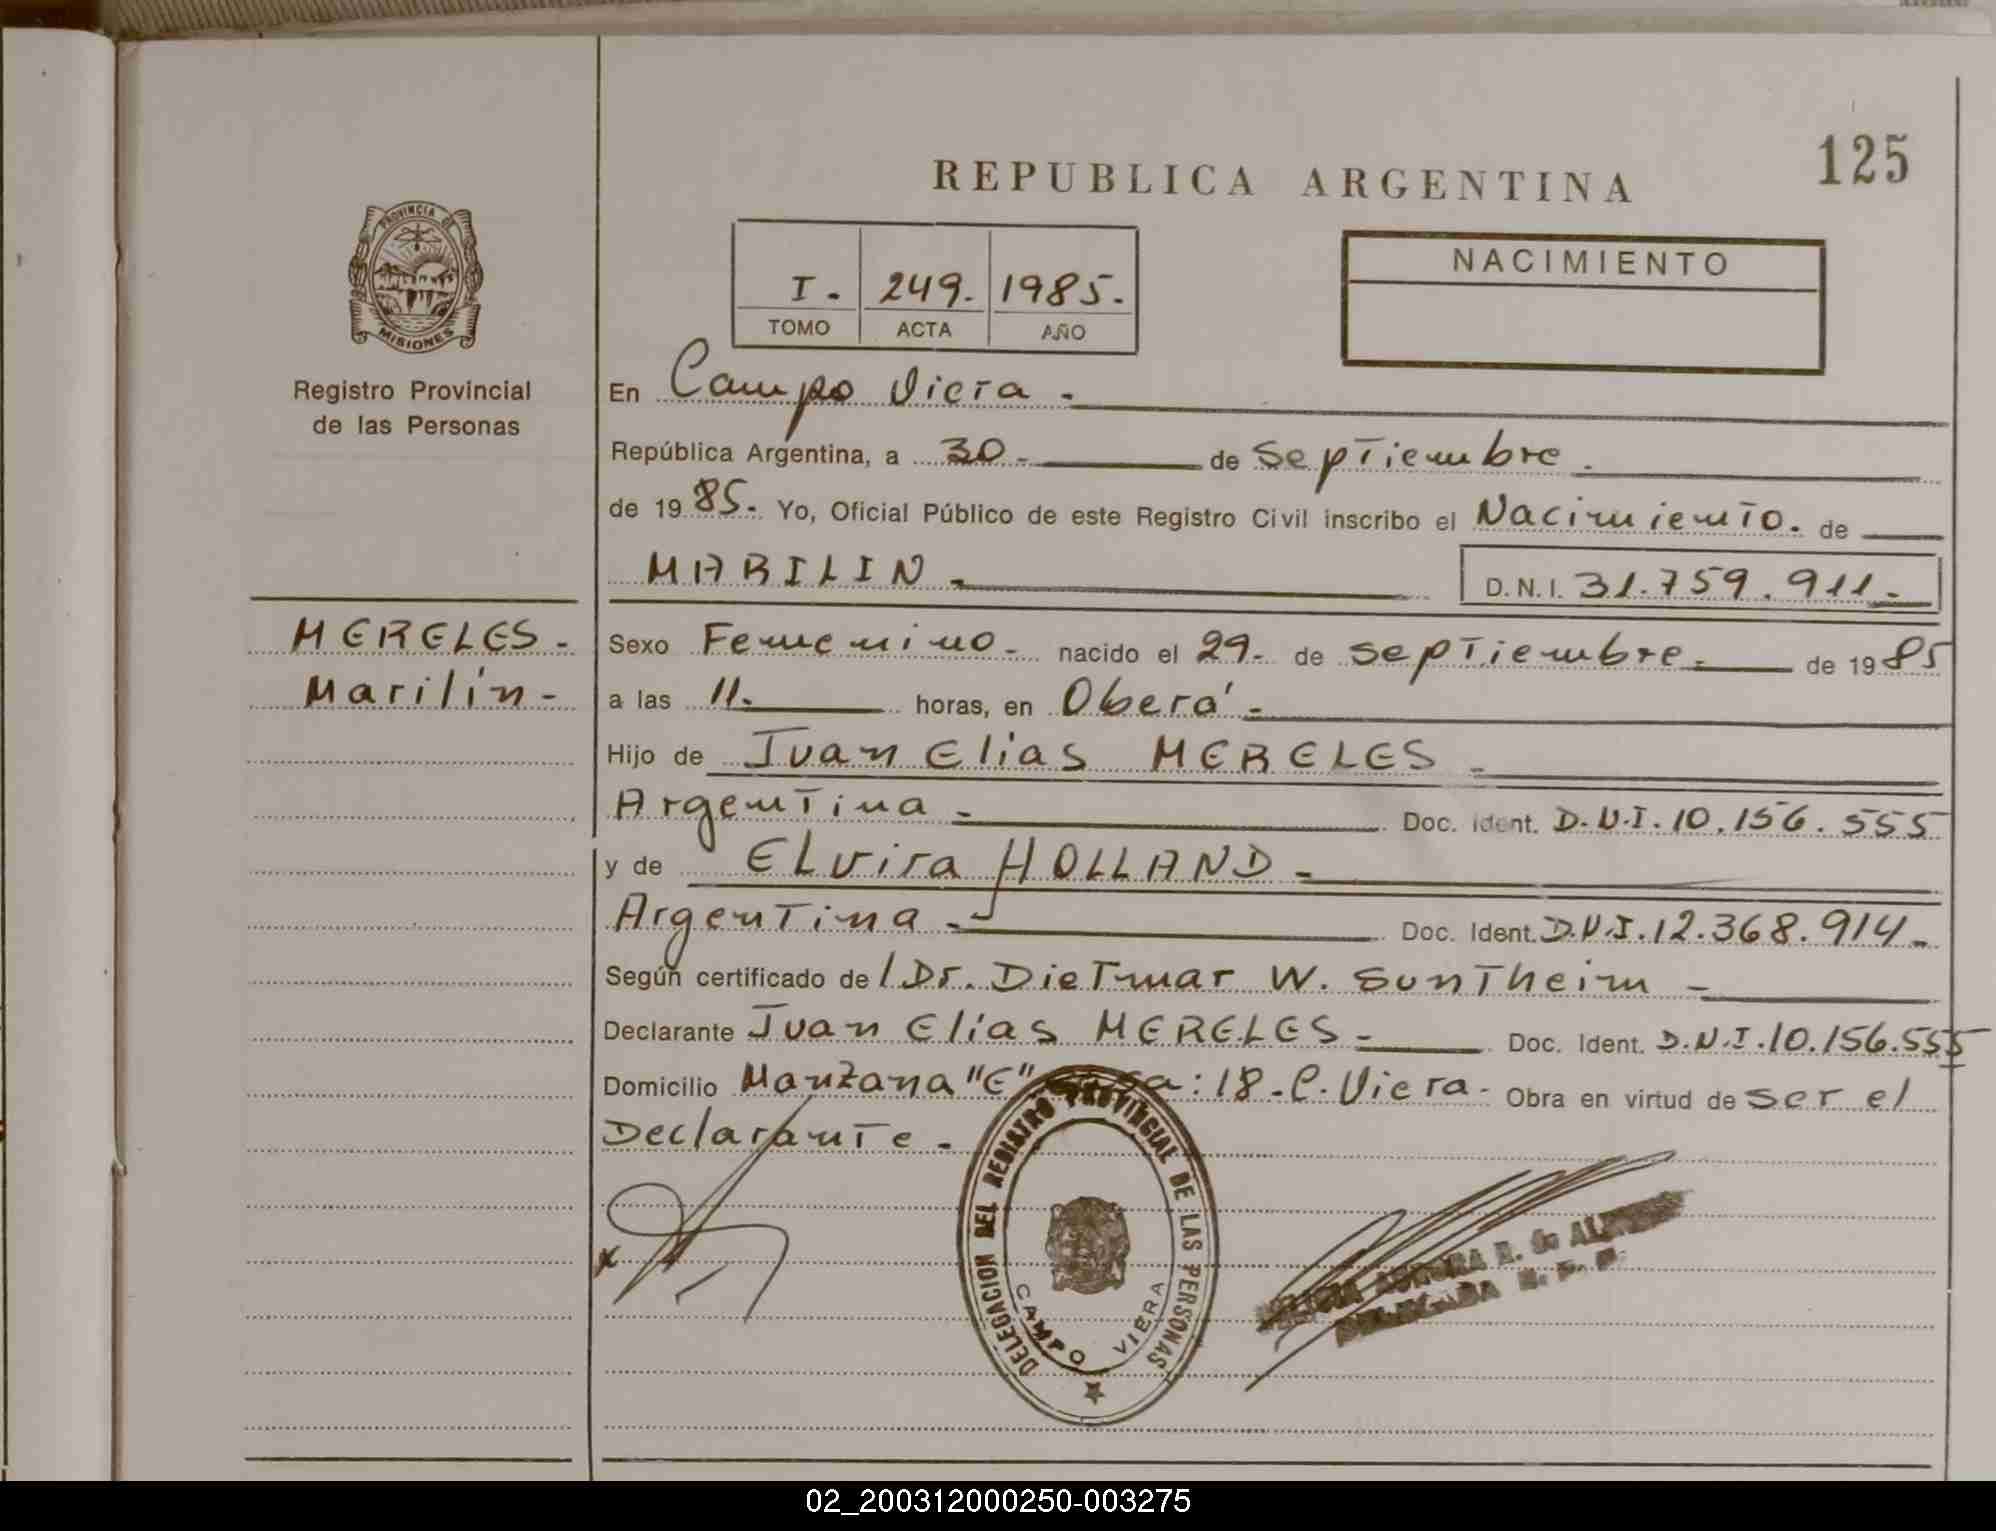 125
REPUBLICA ARGENTINA
PROVINCIA DE
MISIONES
Registro Provincial
de las Personas
I. 249. 1985.
TOMO ACTA AÑO
NACIMIENTO
En Campo Viera.
República Argentina, a 30 - de septiembre.
de 1985. Yo, Oficial Público de este Registro Civil inscribo el Nacimiento. de
MARILIN - D.N.I. 31.759.911.-
MERELES -
Marilín -
Sexo Femenino - nacido el 29- de septiembre. de 1985
a las 11. horas, en Oberá -
Hijo de Juan Elias MERELES -
Argentina - Doc. Ident. D.N.I. 10.156.555
y de ELvira HOLLAND -
Argentina - Doc. Ident. D.N.I. 12.368.914 -
Según certificado de / Dr. Dietmar W. Suntheim -
Declarante Juan Elias MERELES - Doc. Ident. D.N.I. 10.156.555
Domicilio Manzana "E" Casa: 18 - C. Viera - Obra en virtud de ser el
Declarante -
DELEGACION DEL REGISTRO PROVINCIAL DE LAS PERSONAS
CAMPO VIERA
DELEGADA R. P. P.
02_200312000250-003275